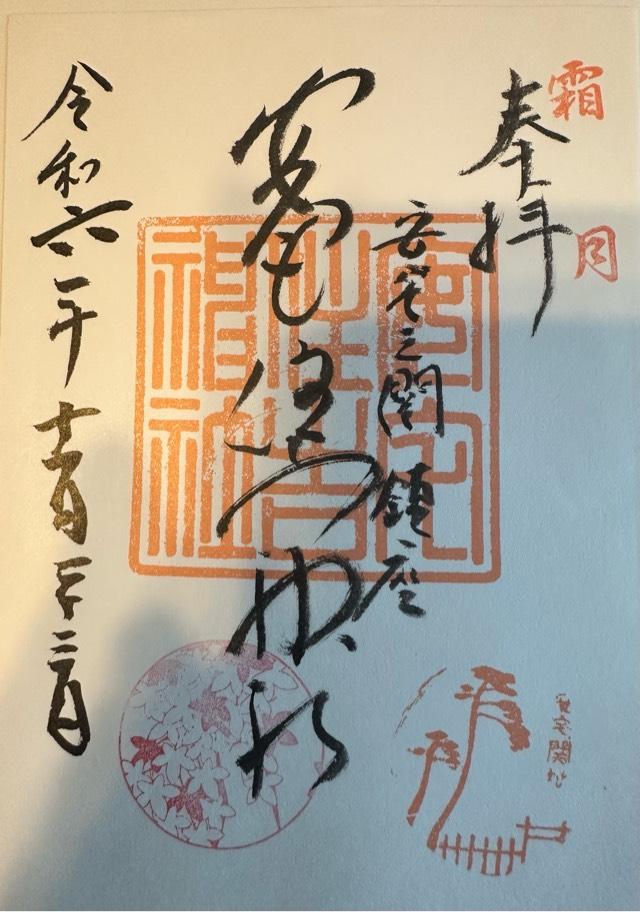 霜月
奉拝
安宅之関鎮座
安宅住吉神社
令和六年十一月二十三日
安宅
住吉
神社
安宅關址